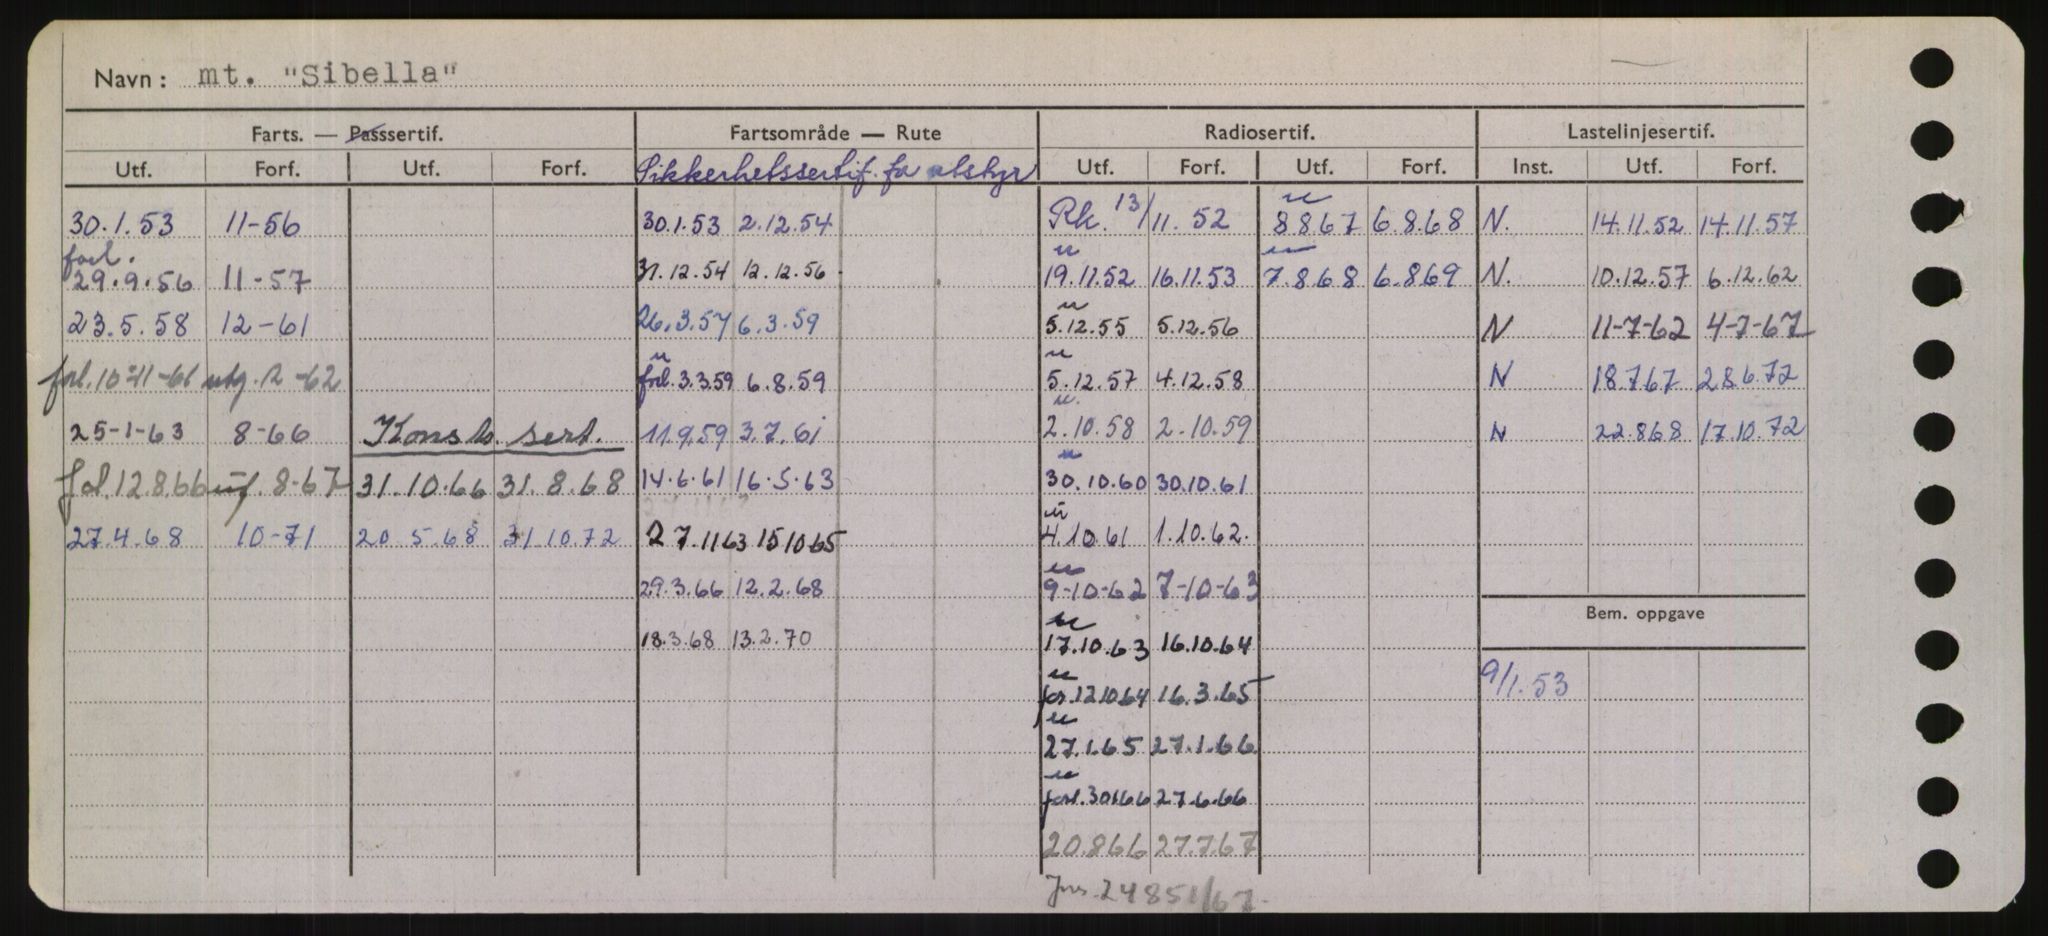 Navn: mt. "Sibella"
Farts. — Passsertif. Fartsområde — Rute Radiosertif. Lastelinjesertif.
Utf. Forf. Utf. Forf. Sikkerhetssertif. for utstyr Utf. Forf. Utf. Forf. Inst. Utf. Forf.
30.1.53 11-56 30.1.53 2.12.54 Rk. 13/11.52 u 8867 6.8.68 N. 14.11.52 14.11.57
forl. 29.9.56 11-57 31.12.54 12.12.56 u 19.11.52 16.11.53 7.868 6.869 N. 10.12.57 6.12.62
23.5.58 12-61 26.3.57 6.3.59 u 5.12.55 5.12.56 N 11-7-62 4-7-67
forl. 10-11-61 utg. 12-62 u forl. 3.3.59 6.8.59 u 5.12.57 4.12.58 N 18.767 28.6.72
25-1-63 8-66 Konstr. sert. 11.9.59 3.7.61 u. 2.10.58 2.10.59 N 22.868 17.10.72
12.8.66 8-67 31.10.66 31.8.68 14.6.61 16.5.63 u 30.10.60 30.10.61
27.4.68 10-71 20.5.68 31.10.72 27.1163 151065 u 4.10.61 1.10.62.
29.3.66 12.2.68 u 9-10-62 7-10-63
18.3.68 13.2.70 u 17.10.63 16.10.64
Bem. oppgave
u for. 121064 16.3.65
9/1.53
u 27.1.65 27.1.66
u forl. 30166 27.6.66
20.866 27.7.67
Jnr. 24851/67.